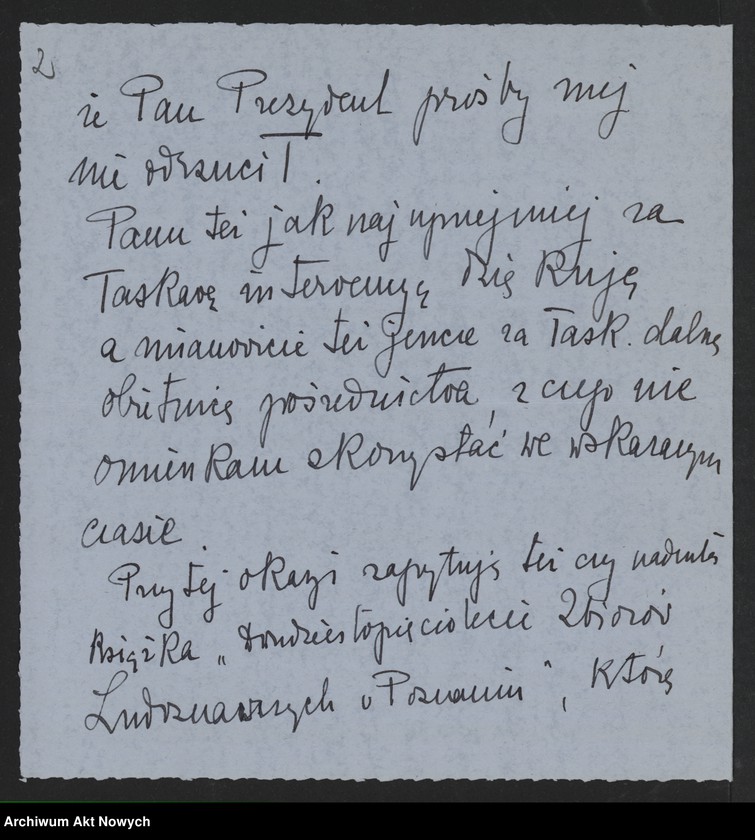 2
że Pan Prezydent prośby mej
nie odrzucił.
Panu też jak najuprzejmiej za
łaskawą interwencyę dziękuję
a mianowicie też jeszcze za łask. dalszą
obietnicę pośrednictwa, z czego nie
omieszkam skorzystać we wskazanym
czasie.
Przy tej okazyi zapytuję też czy nadeszła
książka „Dwudziestopięciolecie Zbiorów
Ludoznawczych w Poznaniu", którą
Archiwum Akt Nowych